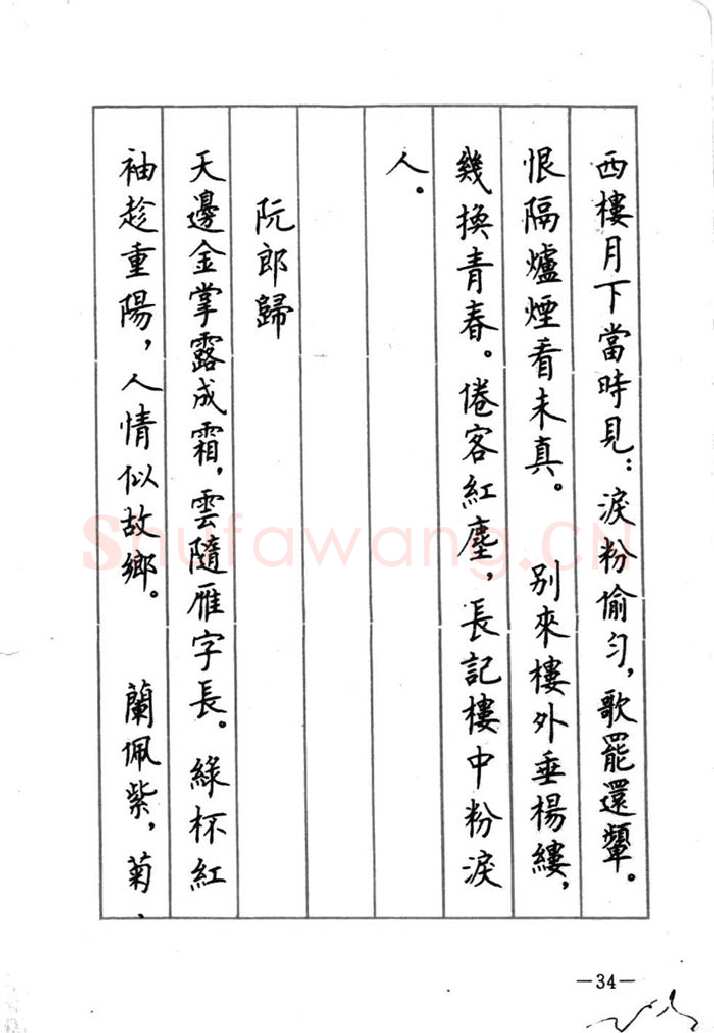 西樓月下當時見：淚粉偷勻，歌罷還顰。
恨隔爐煙看未真。　別來樓外垂楊縷，
幾換青春。倦客紅塵，長記樓中粉淚
人。
阮郎歸
天邊金掌露成霜，雲隨雁字長。綠杯紅
袖趁重陽，人情似故鄉。　蘭佩紫，菊
Shufawang.CN
—34—